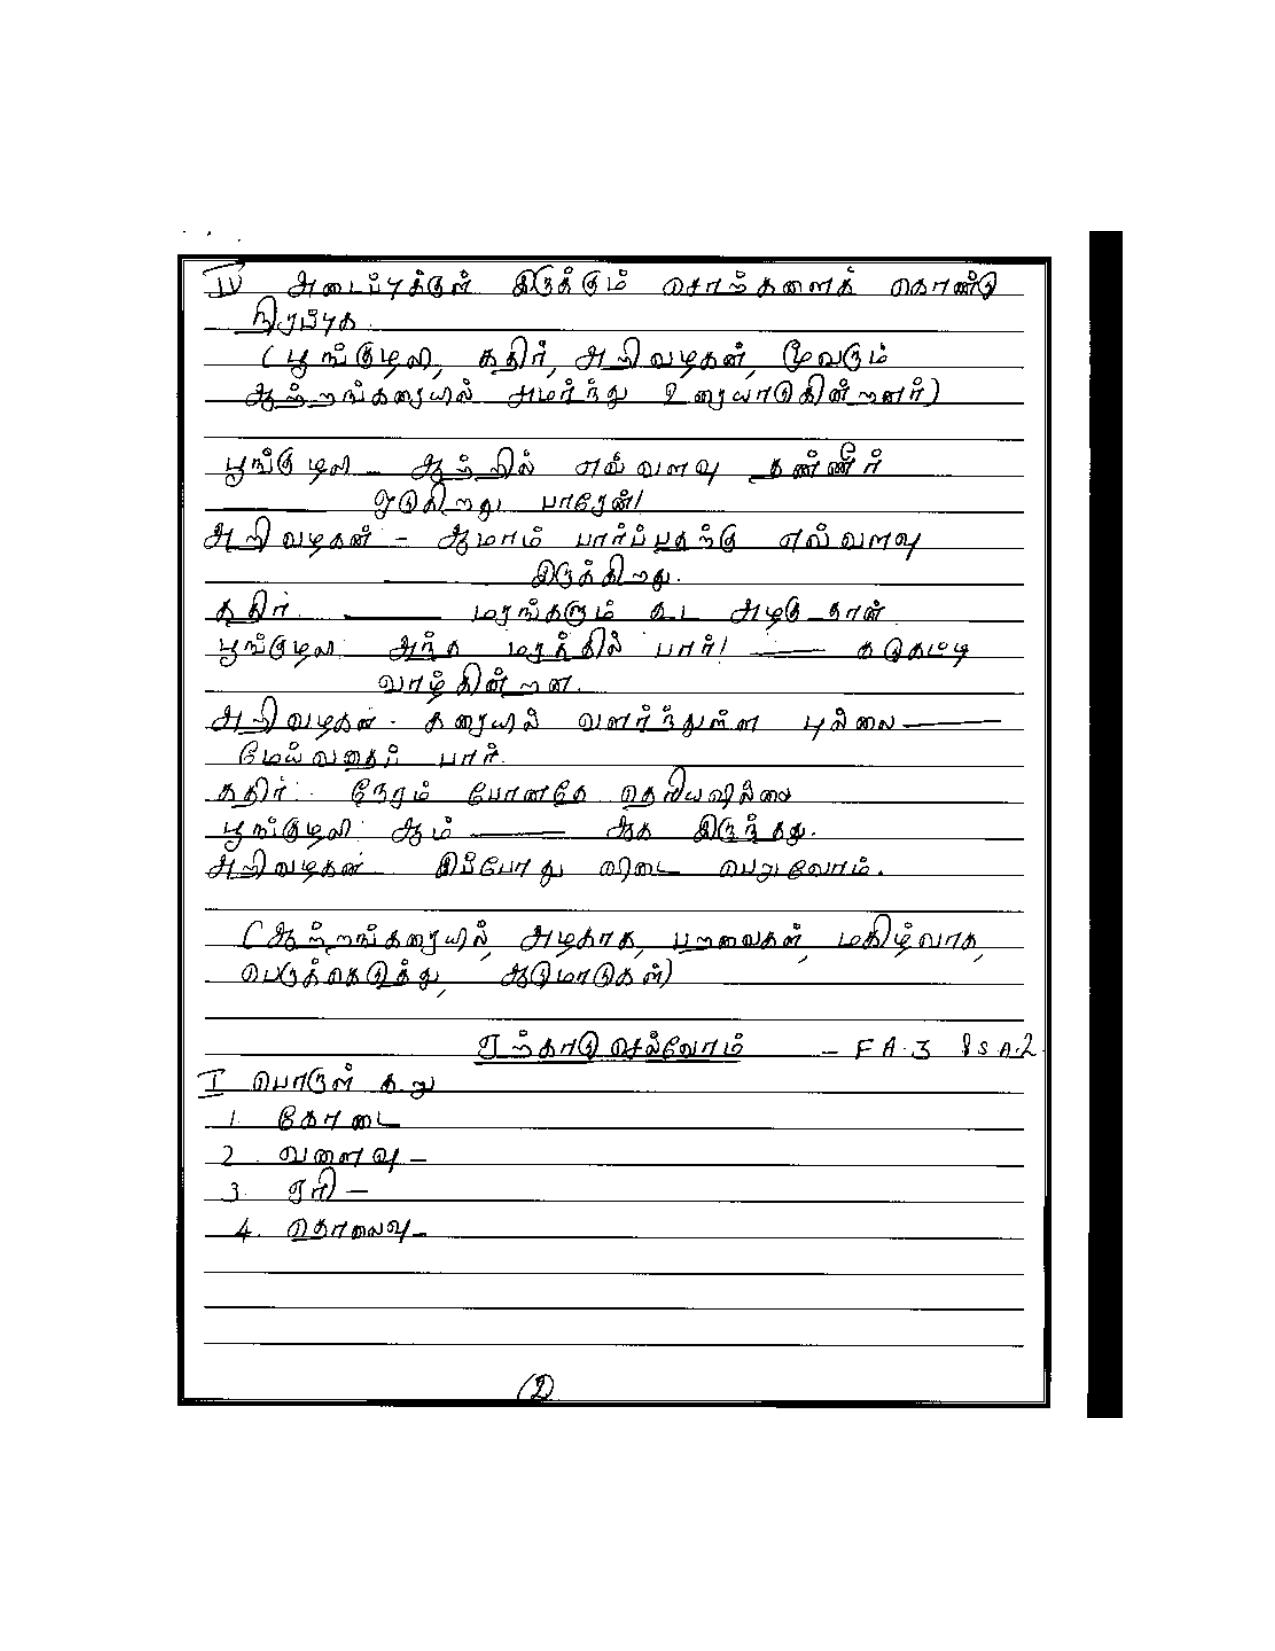 IV அடைப்புக்குள் இருக்கும் சொற்களைக் கொண்டு
நிரப்புக.
(பூங்குழலி, கதிர், அறிவழகன், மூவரும்
ஆற்றங்கரையில் அமர்ந்து உரையாடுகின்றனர்)
பூங்குழலி - ஆற்றில் எவ்வளவு தண்ணீர்
ஓடுகிறது பாரேன்!
அறிவழகன் - ஆமாம் பார்ப்பதற்கு எவ்வளவு
——— இருக்கிறது.
கதிர். ——— மரங்களும் கூட அழகு தான்
பூங்குழலி: அந்த மரத்தில் பார்! ——— கூடுகட்டி
வாழ்கின்றன.
அறிவழகன். கரையில் வளர்ந்துள்ள புல்லை ———
மேய்வதைப் பார்.
கதிர்: நேரம் போனதே தெரியவில்லை
பூங்குழலி: ஆம் ——— ஆக இருந்தது.
அறிவழகன் இப்போது விடை பெறுவோம்.
(ஆற்றங்கரையில், அழகாக, பறவைகள், மகிழ்வாக,
பெருக்கெடுத்து, ஆடுமாடுகள்)
ஏற்காடு செல்வோம் - FA.3 & SA.2
I பொருள் கூறு
1. கோடை
2. வளைவு -
3. ஏரி -
4. தொலைவு -
(2)